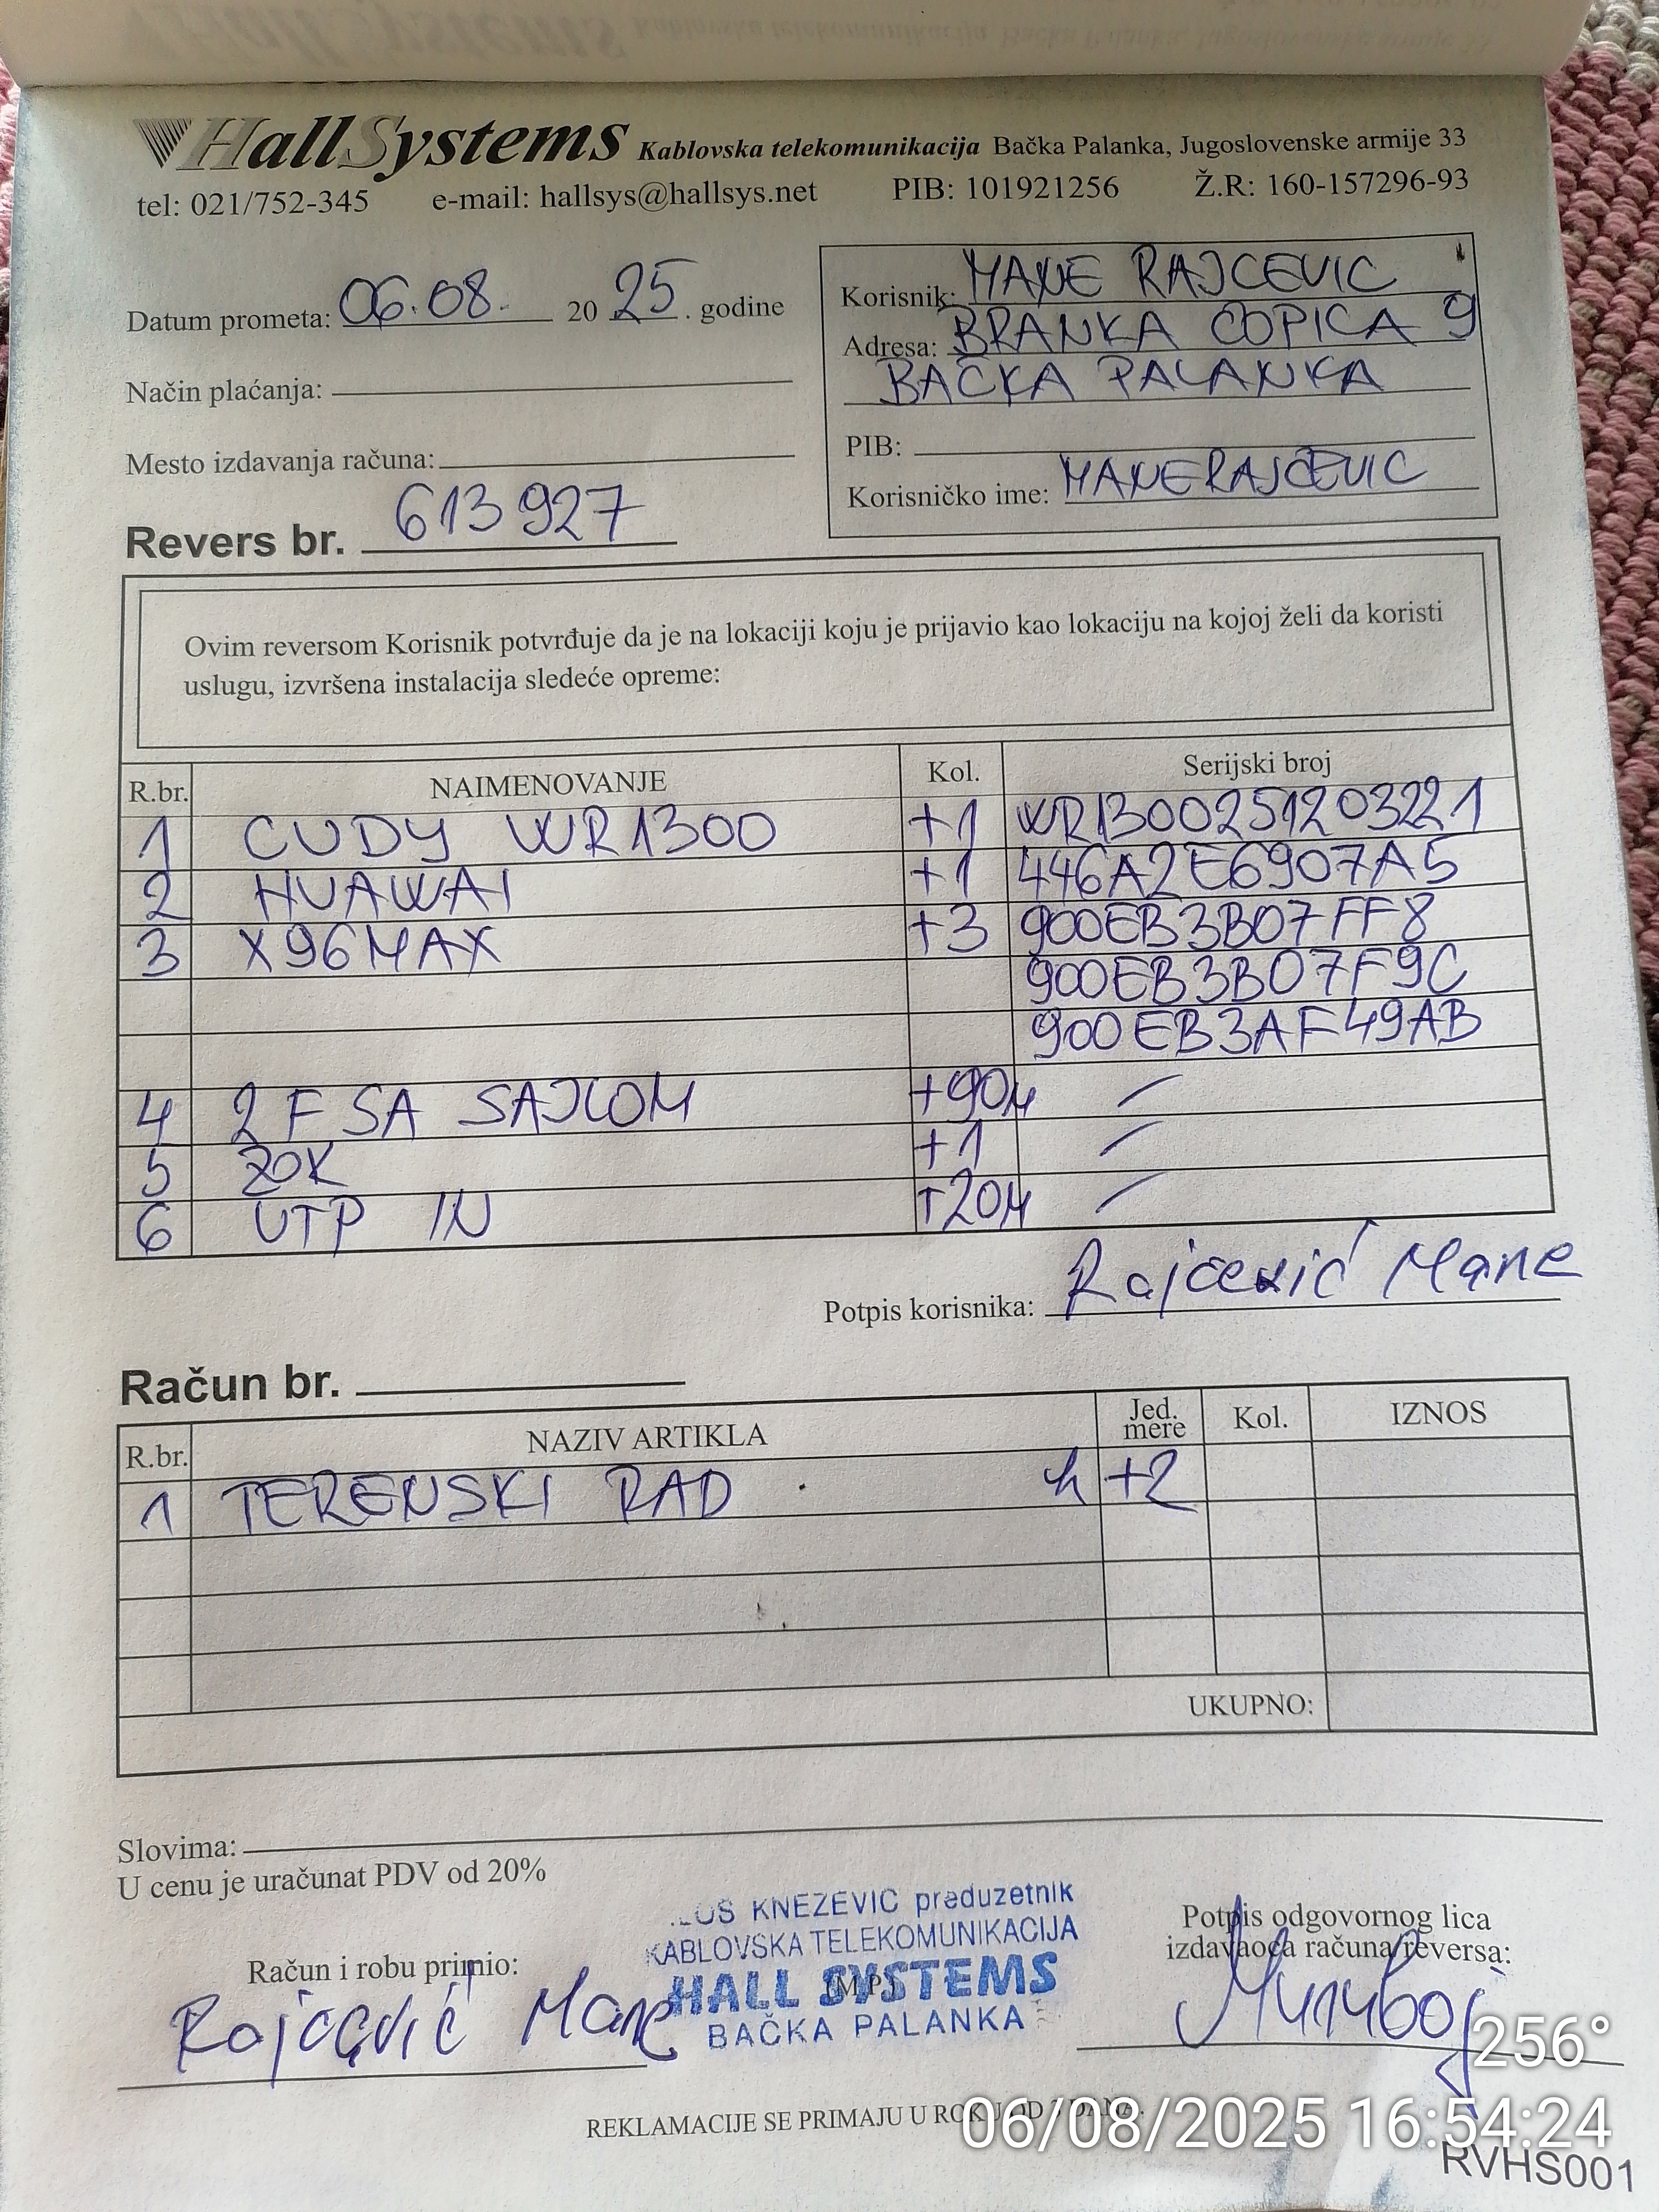 HallSystems Kablovska telekomunikacija Bačka Palanka, Jugoslovenske armije 33
tel: 021/752-345 e-mail: hallsys@hallsys.net PIB: 101921256 Ž.R: 160-157296-93
Datum prometa: 06.08. 20 25 . godine
Način plaćanja:
Mesto izdavanja računa:
Korisnik: MANE RAJCEVIC
Adresa: BRANKA COPICA 9
BAČKA PALANKA
PIB:
Korisničko ime: MANERAJCEVIC
Revers br. 613927
Ovim reversom Korisnik potvrđuje da je na lokaciji koju je prijavio kao lokaciju na kojoj želi da koristi
uslugu, izvršena instalacija sledeće opreme:
R.br. NAIMENOVANJE Kol. Serijski broj
1 CUDY WR1300 +1 WR1300251203221
2 HUAWAI +1 446A2E6907A5
3 X96MAX +3 900EB3B07FF8
900EB3B07F9C
900EB3AF49AB
4 2F SA SAJLOM +90M /
5 ZOK +1 /
6 UTP IN +20M /
Potpis korisnika: Rajčević Mane
Račun br.
R.br. NAZIV ARTIKLA Jed. mere Kol. IZNOS
1 TERENSKI RAD h +2
UKUPNO:
Slovima:
U cenu je uračunat PDV od 20%
KNEZEVIC preduzetnik
KABLOVSKA TELEKOMUNIKACIJA
HALL SYSTEMS
(M.P.)
BAČKA PALANKA
Račun i robu primio:
Rajčević Mane
Potpis odgovornog lica
izdavaoca računa/reversa:
256°
REKLAMACIJE SE PRIMAJU U ROKU OD DANA.
06/08/2025 16:54:24
RVHS001